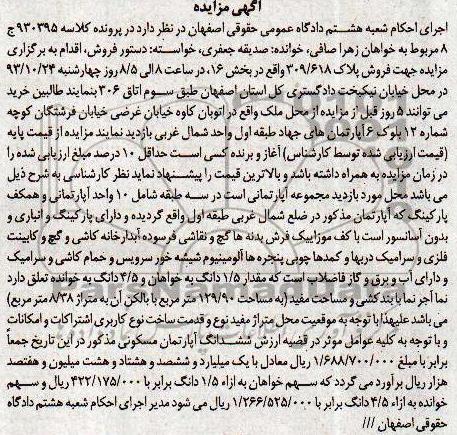 آگهی مزایده
اجرای احکام شعبه هشتم دادگاه عمومی حقوقی اصفهان در نظر دارد در پرونده کلاسه ۹۳۰۳۹۵ ج
۸ مربوط به خواهان زهرا صافی، خوانده: صدیقه جعفری، خواسته: دستور فروش، اقدام به برگزاری
مزایده جهت فروش پلاک ۳۰۹/۶۱۸ واقع در بخش ۱۶، در ساعت ۸ الی ۸/۵ روز چهارشنبه ۹۳/۱۰/۲۴
در محل خیابان نیکبخت دادگستری کل استان اصفهان طبق سوم اتاق ۳۰۶ بنمایند طالبین خرید
می توانند ۵ روز قبل از مزایده از محل ملک واقع در اتوبان کاوه خیابان غرضی خیابان فرشتگان کوچه
شماره ۱۲ بلوک ۶ آپارتمان های جهاد طبقه اول واحد شمال غربی بازدید نمایند مزایده از قیمت پایه
(قیمت ارزیابی شده توسط کارشناس) آغاز و برنده کسی است حداقل ۱۰ درصد مبلغ ارزیابی شده را
در زمان مزایده به همراه داشته باشد و بالاترین قیمت را پیشنهاد نماید نظر کارشناسی به شرح ذیل
می باشد محل مورد بازدید مجموعه آپارتمانی است در سه طبقه شامل ۱۰ واحد آپارتمانی و همکف
پارکینگ که آپارتمان مذکور در ضلع شمال غربی طبقه اول واقع گردیده و دارای پارکینگ و انباری و
بدون آسانسور است با کف موزاییک فرش بدنه ها گچ و نقاشی فرسوده آبدارخانه کاشی و گچ و کابینت
فلزی و سرامیک دربها و کمدها چوبی پنجره ها آلومینیوم شیشه خور سرویس و حمام کاشی و سرامیک
و دارای آب و برق و گاز فاضلاب است که مقدار ۱/۵ دانگ به خواهان و ۴/۵ دانگ به خوانده تعلق دارد
نما آجر نما با بند کشی و مساحت مفید (به مساحت ۱۲۹/۹۰ متر مربع با بالکن آن به متراژ ۸/۳۸ متر مربع)
می باشد علیهذا با توجه به موقعیت محل متراژ مفید نوع و قدمت ساخت نوع کاربری اشتراکات و امکانات
و با توجه به کلیه عوامل موثر در قضیه ارزش ششدانگ آپارتمان مسکونی مذکور در این تاریخ جمعاً
برابر با مبلغ ۱/۶۸۸/۷۰۰/۰۰۰ ریال معادل با یک میلیارد و ششصد و هشتاد و هشت میلیون و هفتصد
هزار ریال برآورد می گردد که سهم خواهان به ازاء ۱/۵ دانگ برابر با ۴۲۲/۱۷۵/۰۰۰ ریال و سهم
خوانده به ازاء ۴/۵ دانگ برابر با ۱/۲۶۶/۵۲۵/۰۰۰ ریال می شود مدیر اجرای احکام شعبه هشتم دادگاه
حقوقی اصفهان ///